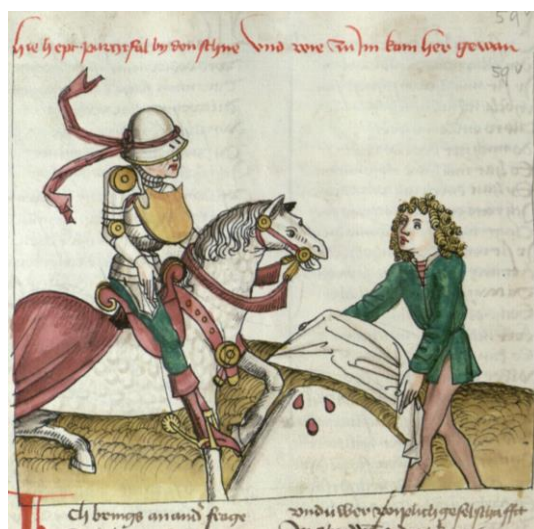 59v
hie hept partzifal by dem schne Vnd wie zu Im kam her gewan
59v
Ich brings an and' frage
vnd üwer wiplich geselschafft